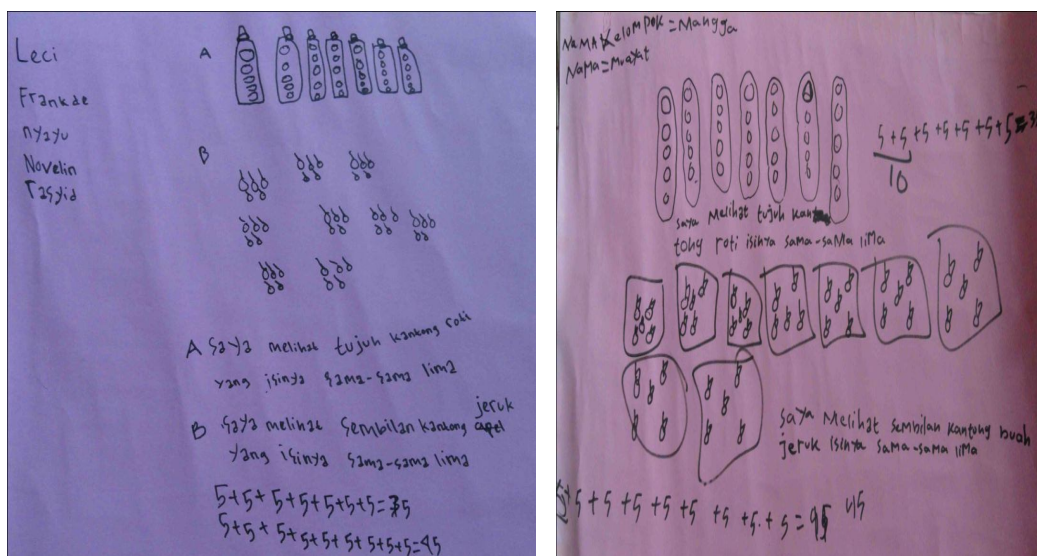 Leci
Frankde
nyayu
Novelin
Tasyid
A
B
A saya melihat tujuh kantong roti
yang isinya sama-sama lima
B saya melihat sembilan kantong jeruk
yang isinya sama-sama lima
5+5+5+5+5+5+5=35
5+5+5+5+5+5+5+5+5=45
NaMA Kelompok = Mangga
NaMa = Muayat
5+5+5+5+5+5+5=3
10
saya Melihat tujuh kan
tong roti isinya sama-saMa liMa
saya Melihat sembilan kantong buah
jeruk isinya saMa-sama liMa
5+5+5+5+5+5+5+5+5=45 45